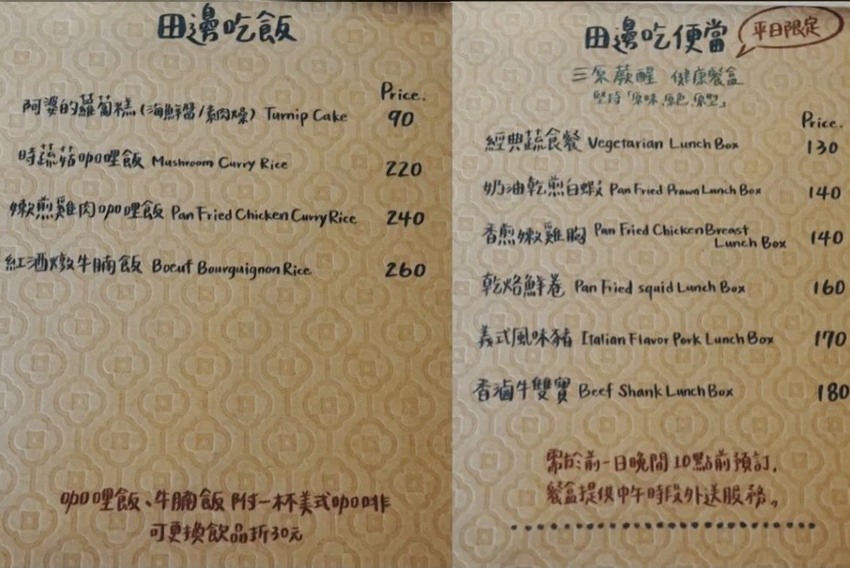 田邊吃飯
Price.
阿婆的蘿蔔糕(海鮮醬/素肉燥) Turnip Cake 90
時蔬菇咖哩飯 Mushroom Curry Rice 220
嫩煎雞肉咖哩飯 Pan Fried Chicken Curry Rice 240
紅酒燉牛腩飯 Boeuf Bourguignon Rice 260
咖哩飯、牛腩飯 附一杯美式咖啡
可更換飲品折30元
田邊吃便當
平日限定
三原蕨醒 健康餐盒
堅持「原味、原色、原型」
Price.
經典蔬食餐 Vegetarian Lunch Box 130
奶油乾煎白蝦 Pan Fried Prawn Lunch Box 140
香煎嫩雞胸 Pan Fried Chicken Breast
Lunch Box 140
乾烙鮮卷 Pan Fried squid Lunch Box 160
義式風味豬 Italian Flavor Pork Lunch Box 170
香滷牛雙寶 Beef Shank Lunch Box 180
需於前一日晚間10點前預訂.
餐盒提供中午時段外送服務。